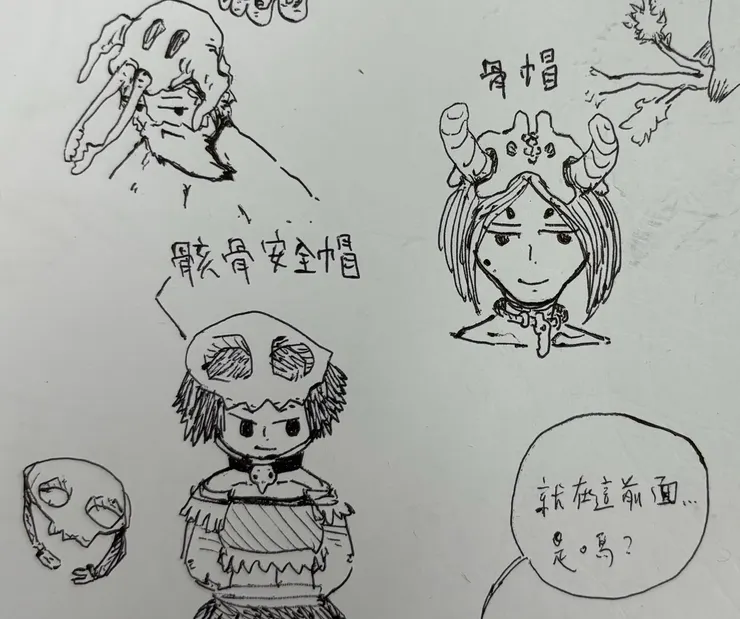 骨帽
骸骨安全帽
就在這前面...
是嗎?